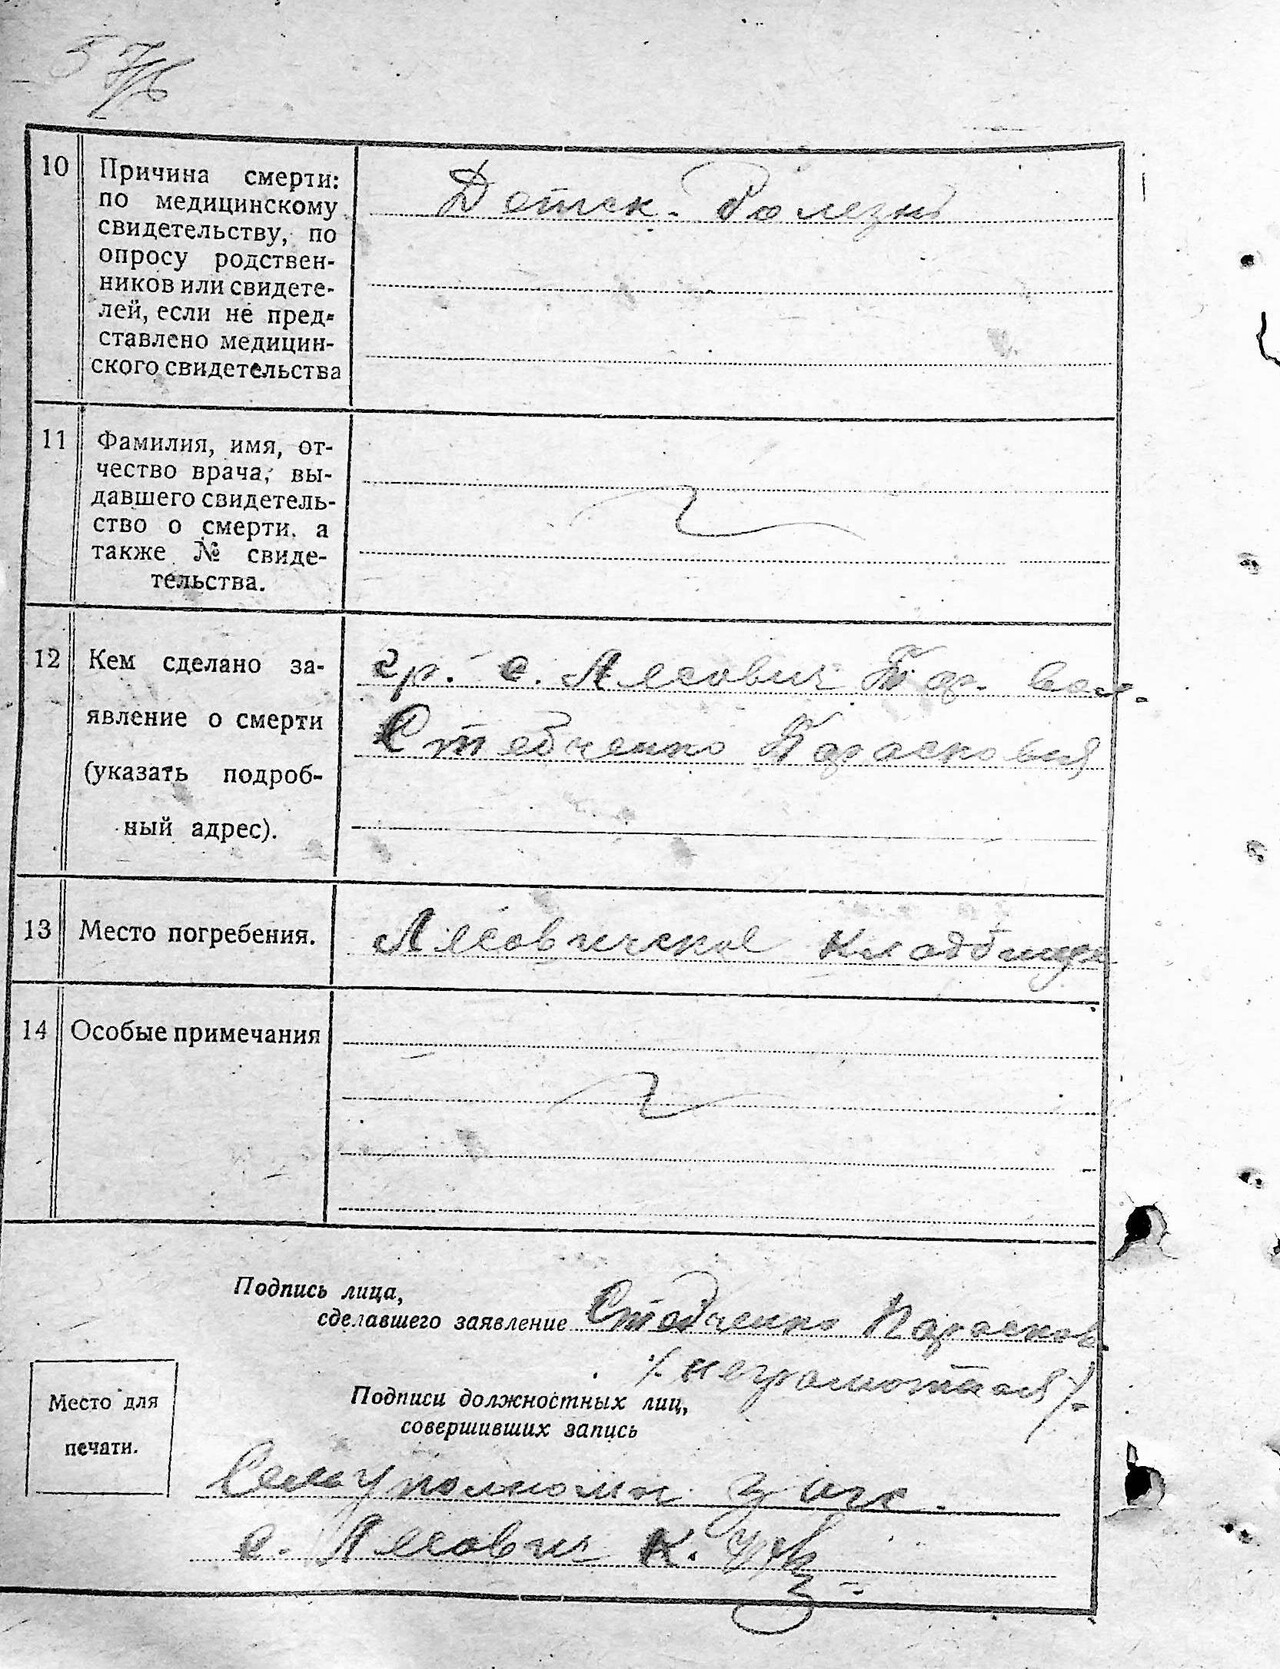 10 Причина смерти:
по медицинскому
свидетельству, по
опросу родствен-
ников или свидете-
лей, если не пред-
ставлено медицин-
ского свидетельства
Детск. болезнь
11 Фамилия, имя, от-
чество врача, вы-
давшего свидетель-
ство о смерти, а
также № свиде-
тельства.
12 Кем сделано за-
явление о смерти
(указать подроб-
ный адрес).
гр. с. Лесович Тар. вол.
Стебченко Парасковия
13 Место погребения.
Лесовичское кладбище
14 Особые примечания
Подпись лица,
сделавшего заявление Стебченко Парасков.
/неграмотная/.
Место для
печати.
Подписи должностных лиц,
совершивших запись
загс.
с. Лесович К.